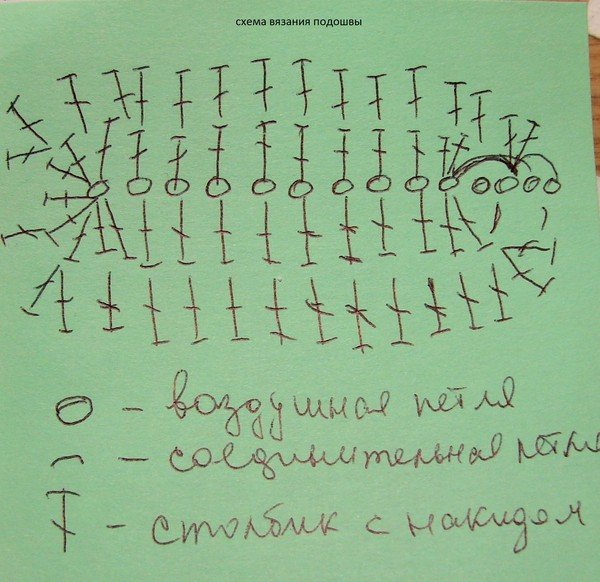 схема вязания подошвы
- воздушная петля
- соединительная петля
- столбик с накидом